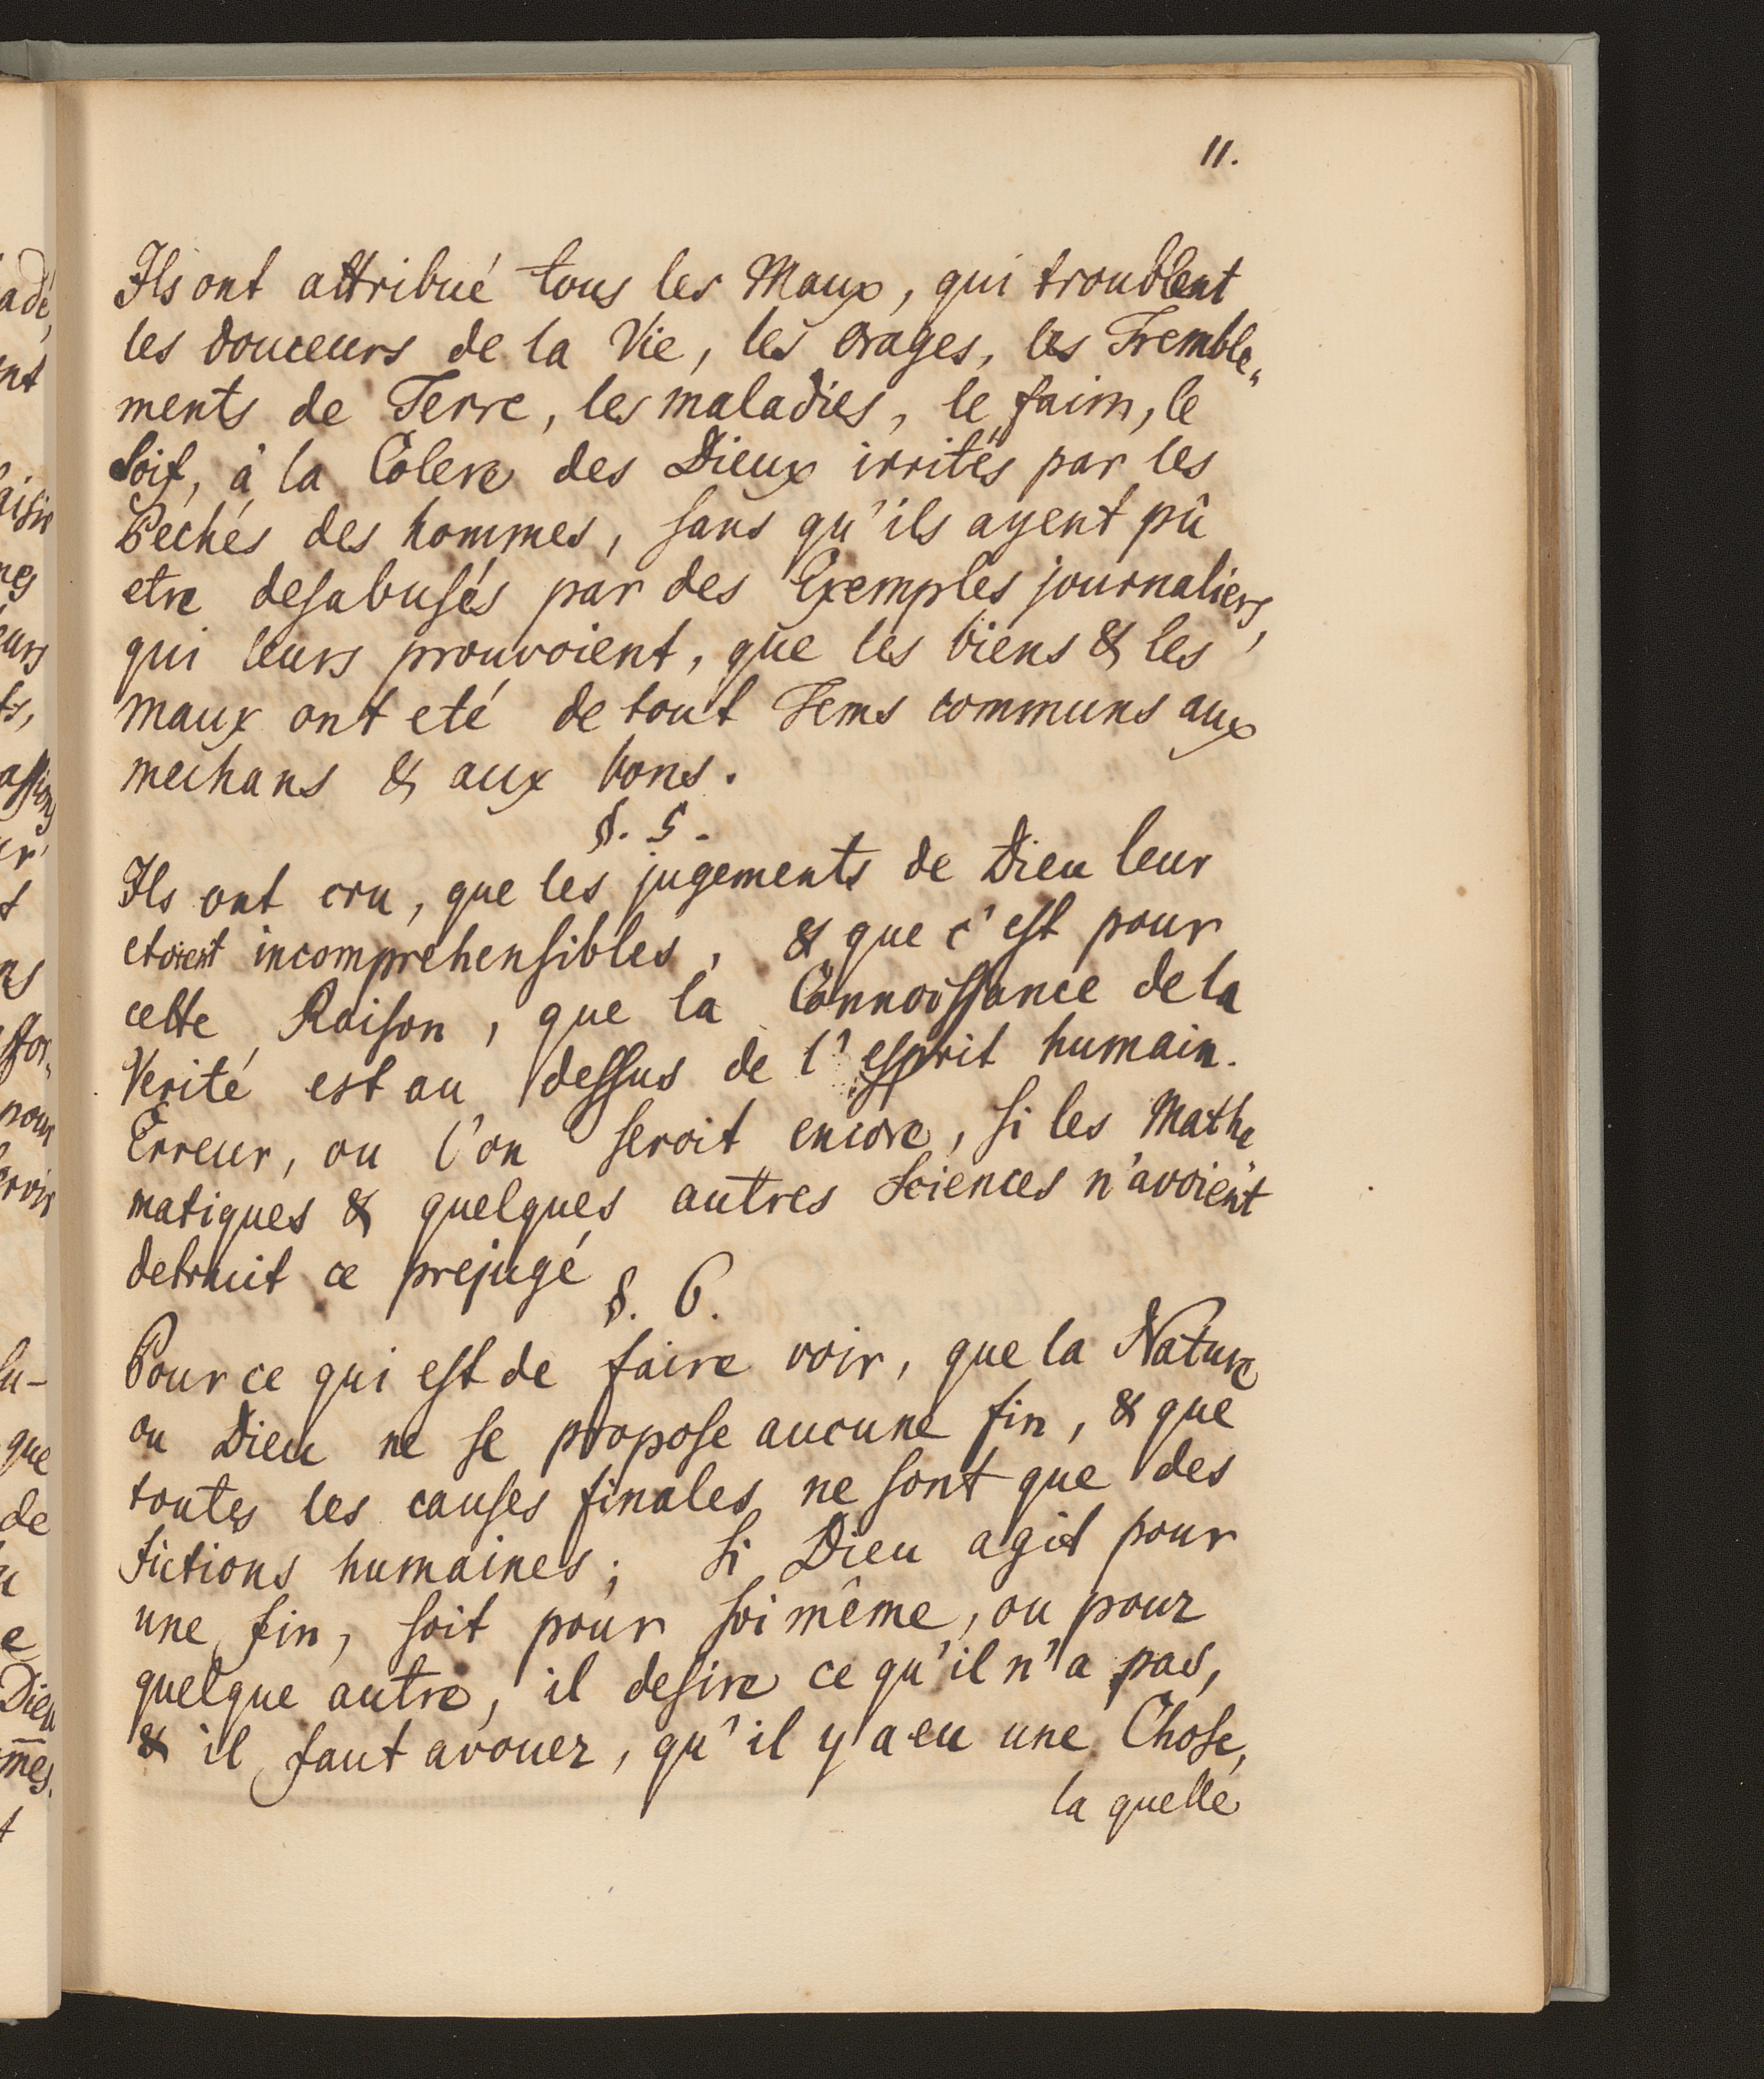 11.
Ils ont attribué tous les Maux, qui troublent
les douceurs de la Vie, les orages, les Tremble„
ments de Terre, les maladies, le faim, le
Soif, à la Colere des Dieux irrités par les
Pechés des hommes, sans qu'ils ayent pû
etre desabusés par des Exemples journaliers,
qui leurs prouvoient, que les biens & les
maux ont eté de tout Tems communs aux
mechans & aux bons.
§. 5.
Ils ont cru, que les jugements de Dieu leur
etoient incomprehensibles, & que c'est pour
cette Raison, que la Connoissance de la
Verité est au dessus de l'esprit humain.
Erreur, ou l'on seroit encore, si les Mathe
matiques & quelques autres Sciences n'avoient
detruit ce prejugé
§. 6.
Pour ce qui est de faire voir, que la Nature
ou Dieu ne se propose aucune fin, & que
toutes les causes finales ne sont que des
fictions humaines; Si Dieu agit pour
une fin, soit pour soi même, ou pour
quelque autre, il desire ce qu'il n'a pas,
& il faut avouer, qu'il y a eu une Chose,
la quelle